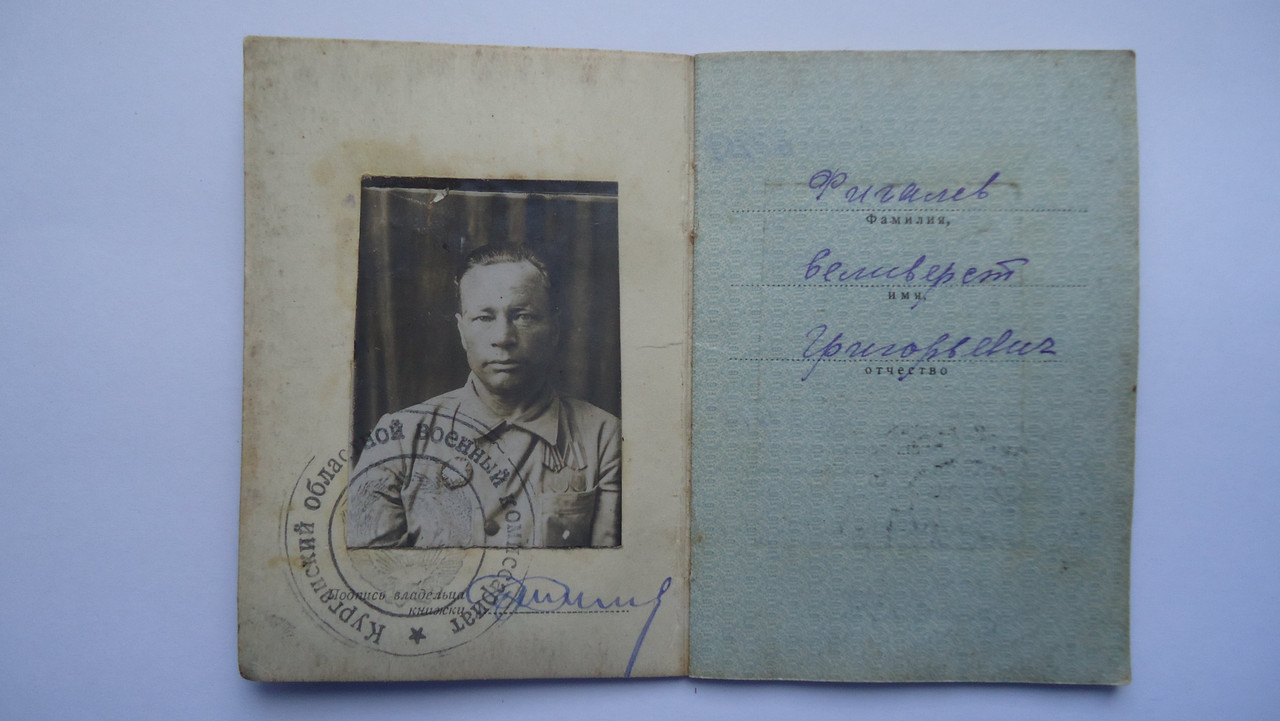 Курганский областной военный комиссариат
Подпись владельца
книжки
Фигалев
Фамилия,
Селиверст
имя,
Григорьевич
отчество